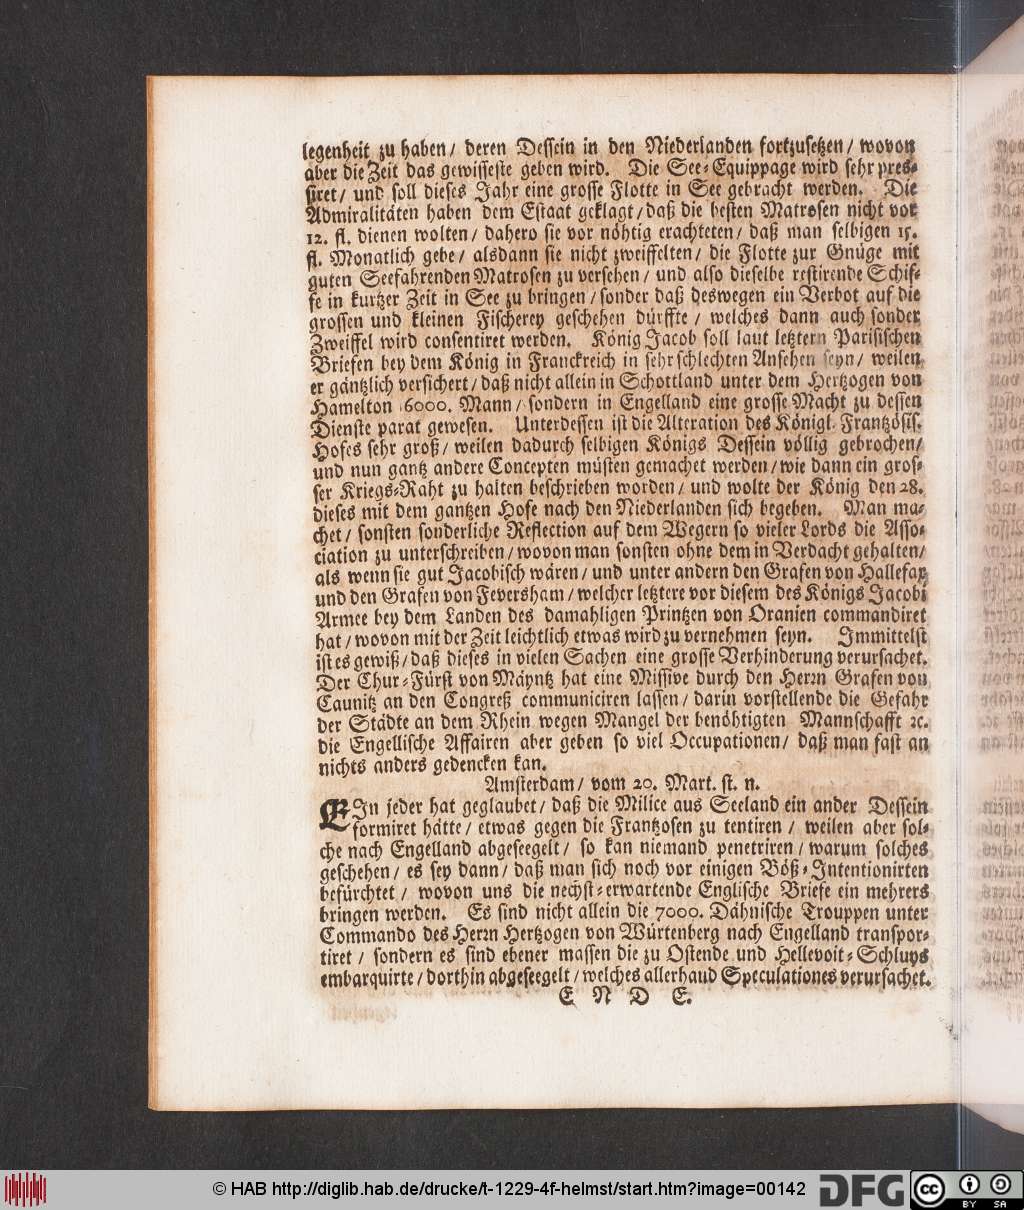 legenheit zu haben / deren Dessein in den Niederlanden fortzusetzen / wovon
aber die Zeit das gewisseste geben wird. Die See-Equippage wird sehr pres-
siret / und soll dieses Jahr eine grosse Flotte in See gebracht werden. Die
Admiralitäten haben dem Estaat geklagt / daß die besten Matrosen nicht vor
12. fl. dienen wolten / dahero sie vor nöhtig erachteten / daß man selbigen 15.
fl. Monatlich gebe / alsdann sie nicht zweiffelten / die Flotte zur Gnüge mit
guten Seefahrenden Matrosen zu versehen / und also dieselbe restirende Schif-
fe in kurtzer Zeit in See zu bringen / sonder daß deswegen ein Verbot auf die
grossen und kleinen Fischerey geschehen dürffte / welches dann auch sonder
Zweiffel wird consentiret werden. König Jacob soll laut letztern Parisischen
Briefen bey dem König in Franckreich in sehr schlechten Ansehen seyn / weilen
er gäntzlich versichert / daß nicht allein in Schottland unter dem Hertzogen von
Hamelton 16000. Mann / sondern in Engelland eine grosse Macht zu dessen
Dienste parat gewesen. Unterdessen ist die Alteration des Königl. Frantzösis.
Hofes sehr groß / weilen dadurch selbigen Königs Dessein völlig gebrochen /
und nun gantz andere Concepten müsten gemachet werden / wie dann ein gros-
ser Kriegs-Raht zu halten beschrieben worden / und wolte der König den 28.
dieses mit dem gantzen Hofe nach den Niederlanden sich begeben. Man ma-
chet / sonsten sonderliche Reflection auf dem Wegern so vieler Lords die Asso-
ciation zu unterschreiben / wovon man sonsten ohne dem in Verdacht gehalten /
als wenn sie gut Jacobisch wären / und unter andern den Grafen von Hallefax
und den Grafen von Feversham / welcher letztere vor diesem des Königs Jacobi
Armee bey dem Landen des damahligen Printzen von Oranien commandiret
hat / wovon mit der Zeit leichtlich etwas wird zu vernehmen seyn. Immittelst
ist es gewiß / daß dieses in vielen Sachen eine grosse Verhinderung verursachet.
Der Chur-Fürst von Mäyntz hat eine Missive durch den Herrn Grafen von
Caunitz an den Congreß communiciren lassen / darin vorstellende die Gefahr
der Städte an dem Rhein wegen Mangel der benöhtigten Mannschafft ꝛc.
die Engellische Affairen aber geben so viel Occupationen / daß man fast an
nichts anders gedencken kan.
Amsterdam / vom 20. Mart. st. n.
EIn jeder hat geglaubet / daß die Milice aus Seeland ein ander Dessein
formiret hätte / etwas gegen die Frantzosen zu tentiren / weilen aber sol-
che nach Engelland abgeseegelt / so kan niemand penetriren / warum solches
geschehen / es sey dann / daß man sich noch vor einigen Böß-Intentionirten
befürchtet / wovon uns die nechst-erwartende Englische Briefe ein mehrers
bringen werden. Es sind nicht allein die 7000. Dähnische Trouppen unter
Commando des Herrn Hertzogen von Würtenberg nach Engelland transpor-
tiret / sondern es sind ebener massen die zu Ostende und Hellevoit-Schluys
embarquirte / dorthin abgeseegelt / welches allerhand Speculationes verursachet.
E N D E.
© HAB http://diglib.hab.de/drucke/t-1229-4f-helmst/start.htm?image=00142
DFG
cc BY SA